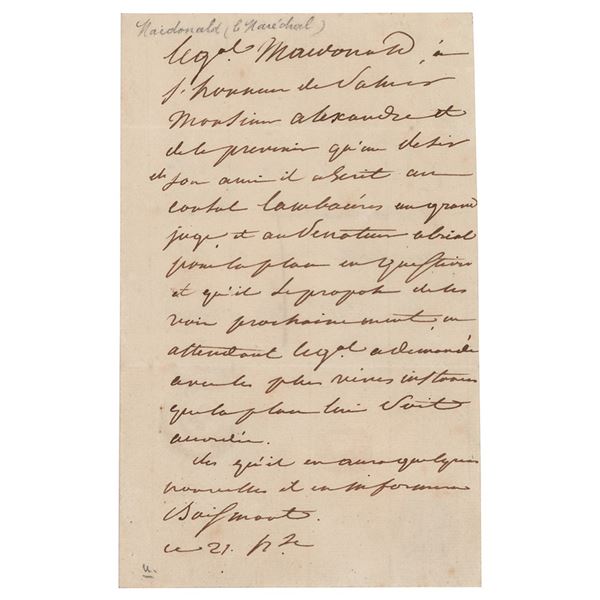 Macdonald (le Maréchal)
le gal. Macdonald, a
l'honneur de saluer
Monsieur alexandre et
de le prevenir qu'au desir
de son ami il a écrit au
consul Cambacérés au grand
juge, et au Senateur abrial
pour la place en question
et qu'il se propose de les
voir prochainement, en
attendant le gal. a demandé
avec les plus vives instances
que la place lui soit
accordée.
dès qu'il en aura quelques
nouvelles il en informera
ce 21.